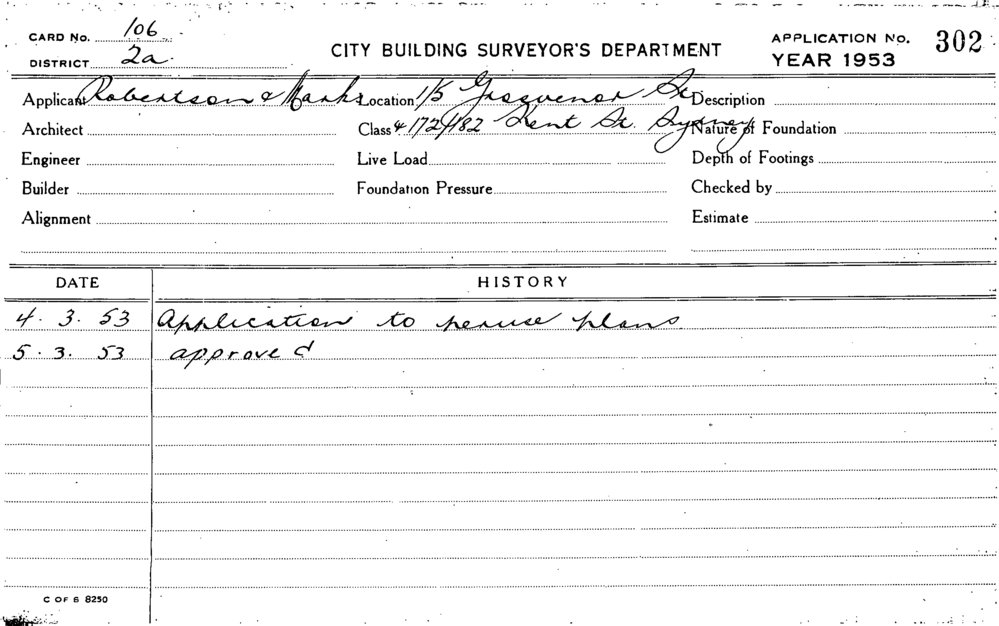 CARD No. 106 CITY BUILDING SURVEYOR'S DEPARTMENT APPLICATION No. 302
DISTRICT 2a. YEAR 1953
Applicant Robertson & Marks Location 1/5 Grosvenor St. Description
Architect Class & 172/182 Kent St. Sydney Nature of Foundation
Engineer Live Load Depth of Footings
Builder Foundation Pressure Checked by
Alignment Estimate
DATE HISTORY
4. 3. 53 Application to peruse plans
5. 3. 53 approved
C OF S 8250